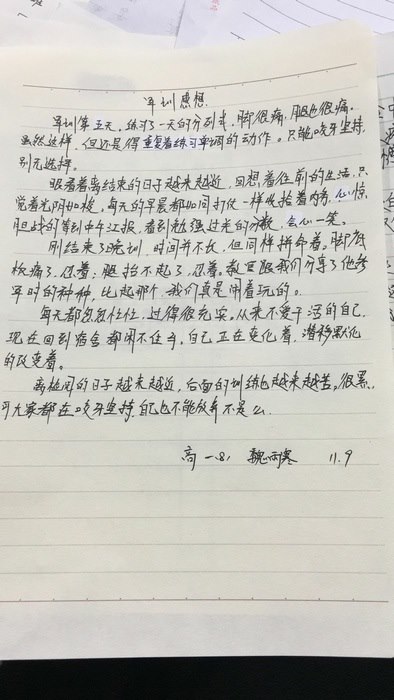 军训感想
军训第五天，练习了一天的分列式，脚很痛，腿也很痛。
虽然这样，但还是得重复着练习单调的动作。只能咬牙坚持，
别无选择。
眼看着离结束的日子越来越近，回想着往前的生活，只
觉着光阴如梭，每天的早晨都如同打仗一样收拾着内务，心惊
胆战的等到中午汇报，看到勉强过关的分数，会心一笑。
刚结束了晚训，时间并不长，但同样拼命着。脚底
板痛了，忍着，腿抬不起了，忍着。教官跟我们分享了他参
军时的种种，比起那个，我们真是闹着玩的。
每天都忽忽忙忙，过得很充实。从来不爱干活的自己，
现在回到宿舍都闲不住手，自己正在变化着，潜移默化
的改变着。
离检阅的日子越来越近，后面的训练也越来越苦。很累，
可大家都在咬牙坚持，自己也不能放弃不是么。
高一.8. 魏雨寒 11.9